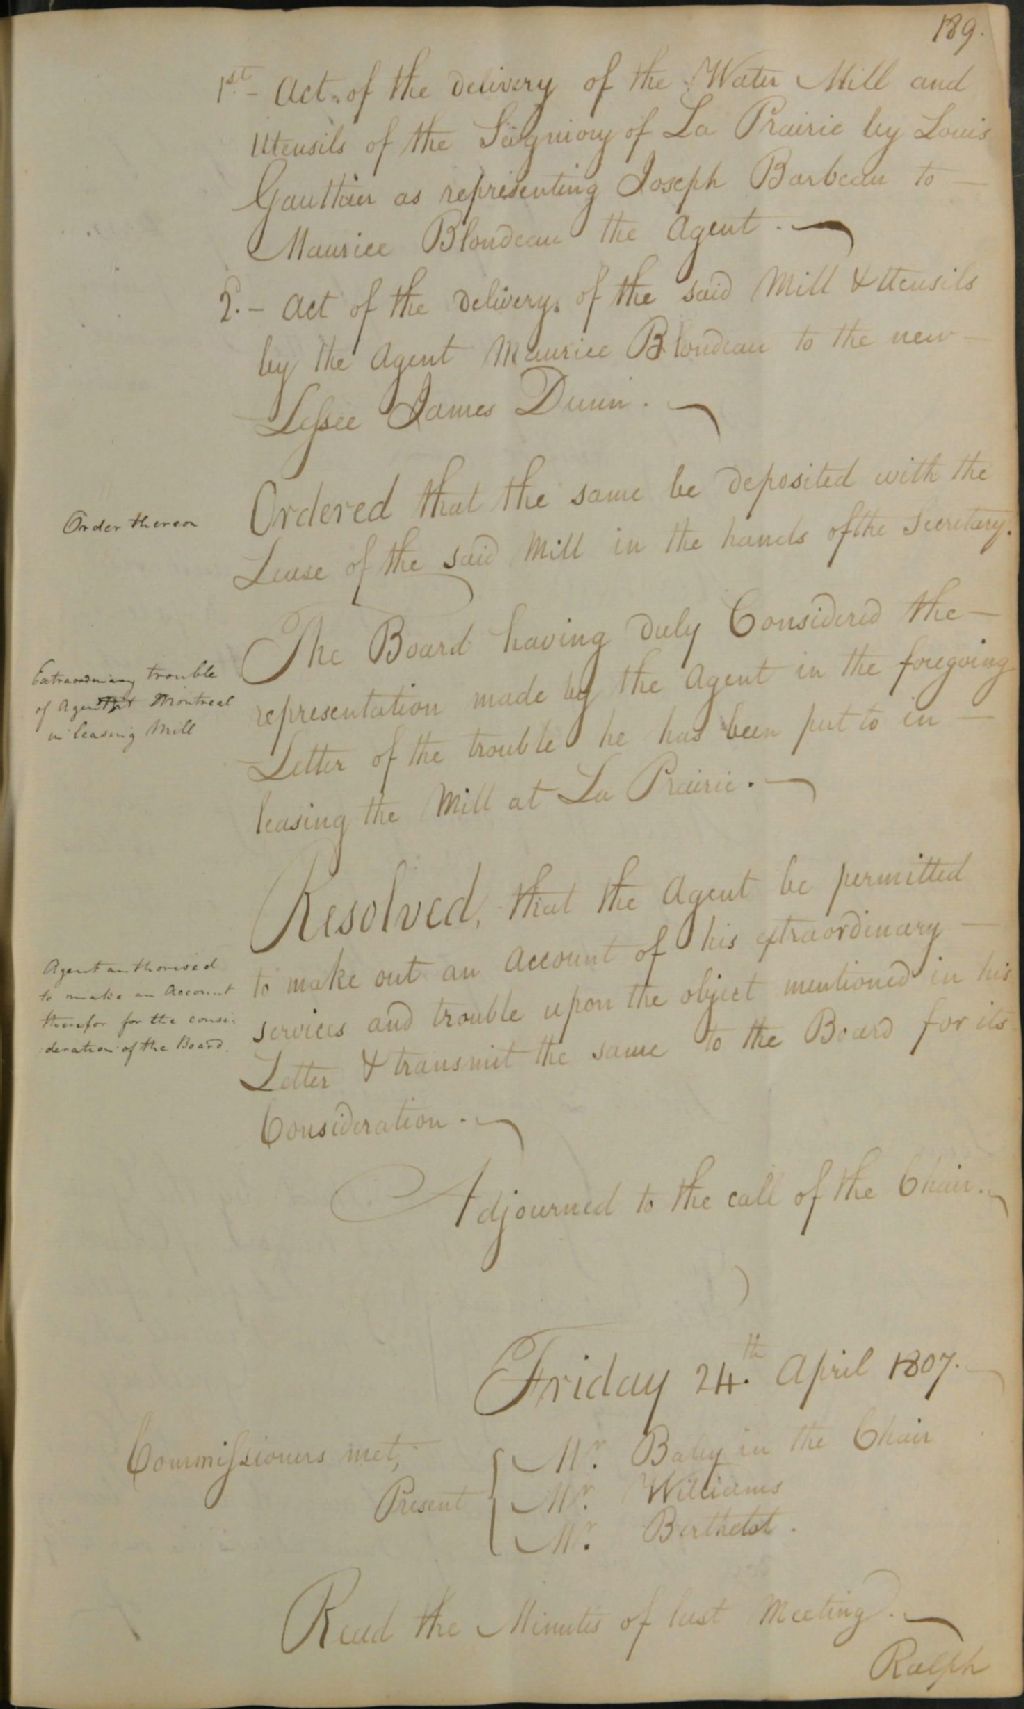 189.
1st - Act of the delivery of the Water Mill and
Utensils of the Seigniory of La Prairie by Louis
Gauthier as representing Joseph Barbeau to -
Maurice Blondeau the Agent. -
2. - Act of the delivery of the said Mill & Utensils
by the Agent Maurice Blondeau to the new -
Lessee James Dunn. -
Order thereon
Ordered that the same be deposited with the
Lease of the said Mill in the hands of the Secretary.
The Board having duly Considered the -
Extraordinary trouble
of Agent at Montreal
in leasing Mill
representation made by the Agent in the foregoing
Letter of the trouble he has been put to in -
leasing the Mill at La Prairie. -
Resolved, that the Agent be permitted
Agent authorised
to make an Account
therefor for the consi-
deration of the Board.
to make out an Account of his extraordinary -
services and trouble upon the object mentioned in his
Letter & transmit the same to the Board for its
Consideration. -
Adjourned to the call of the Chair. -
Friday 24.th April 1807. -
Commissioners met,
Present
Mr. Baby in the Chair
Mr. Williams
Mr. Berthelot.
Read the Minutes of last Meeting. -
Ralph